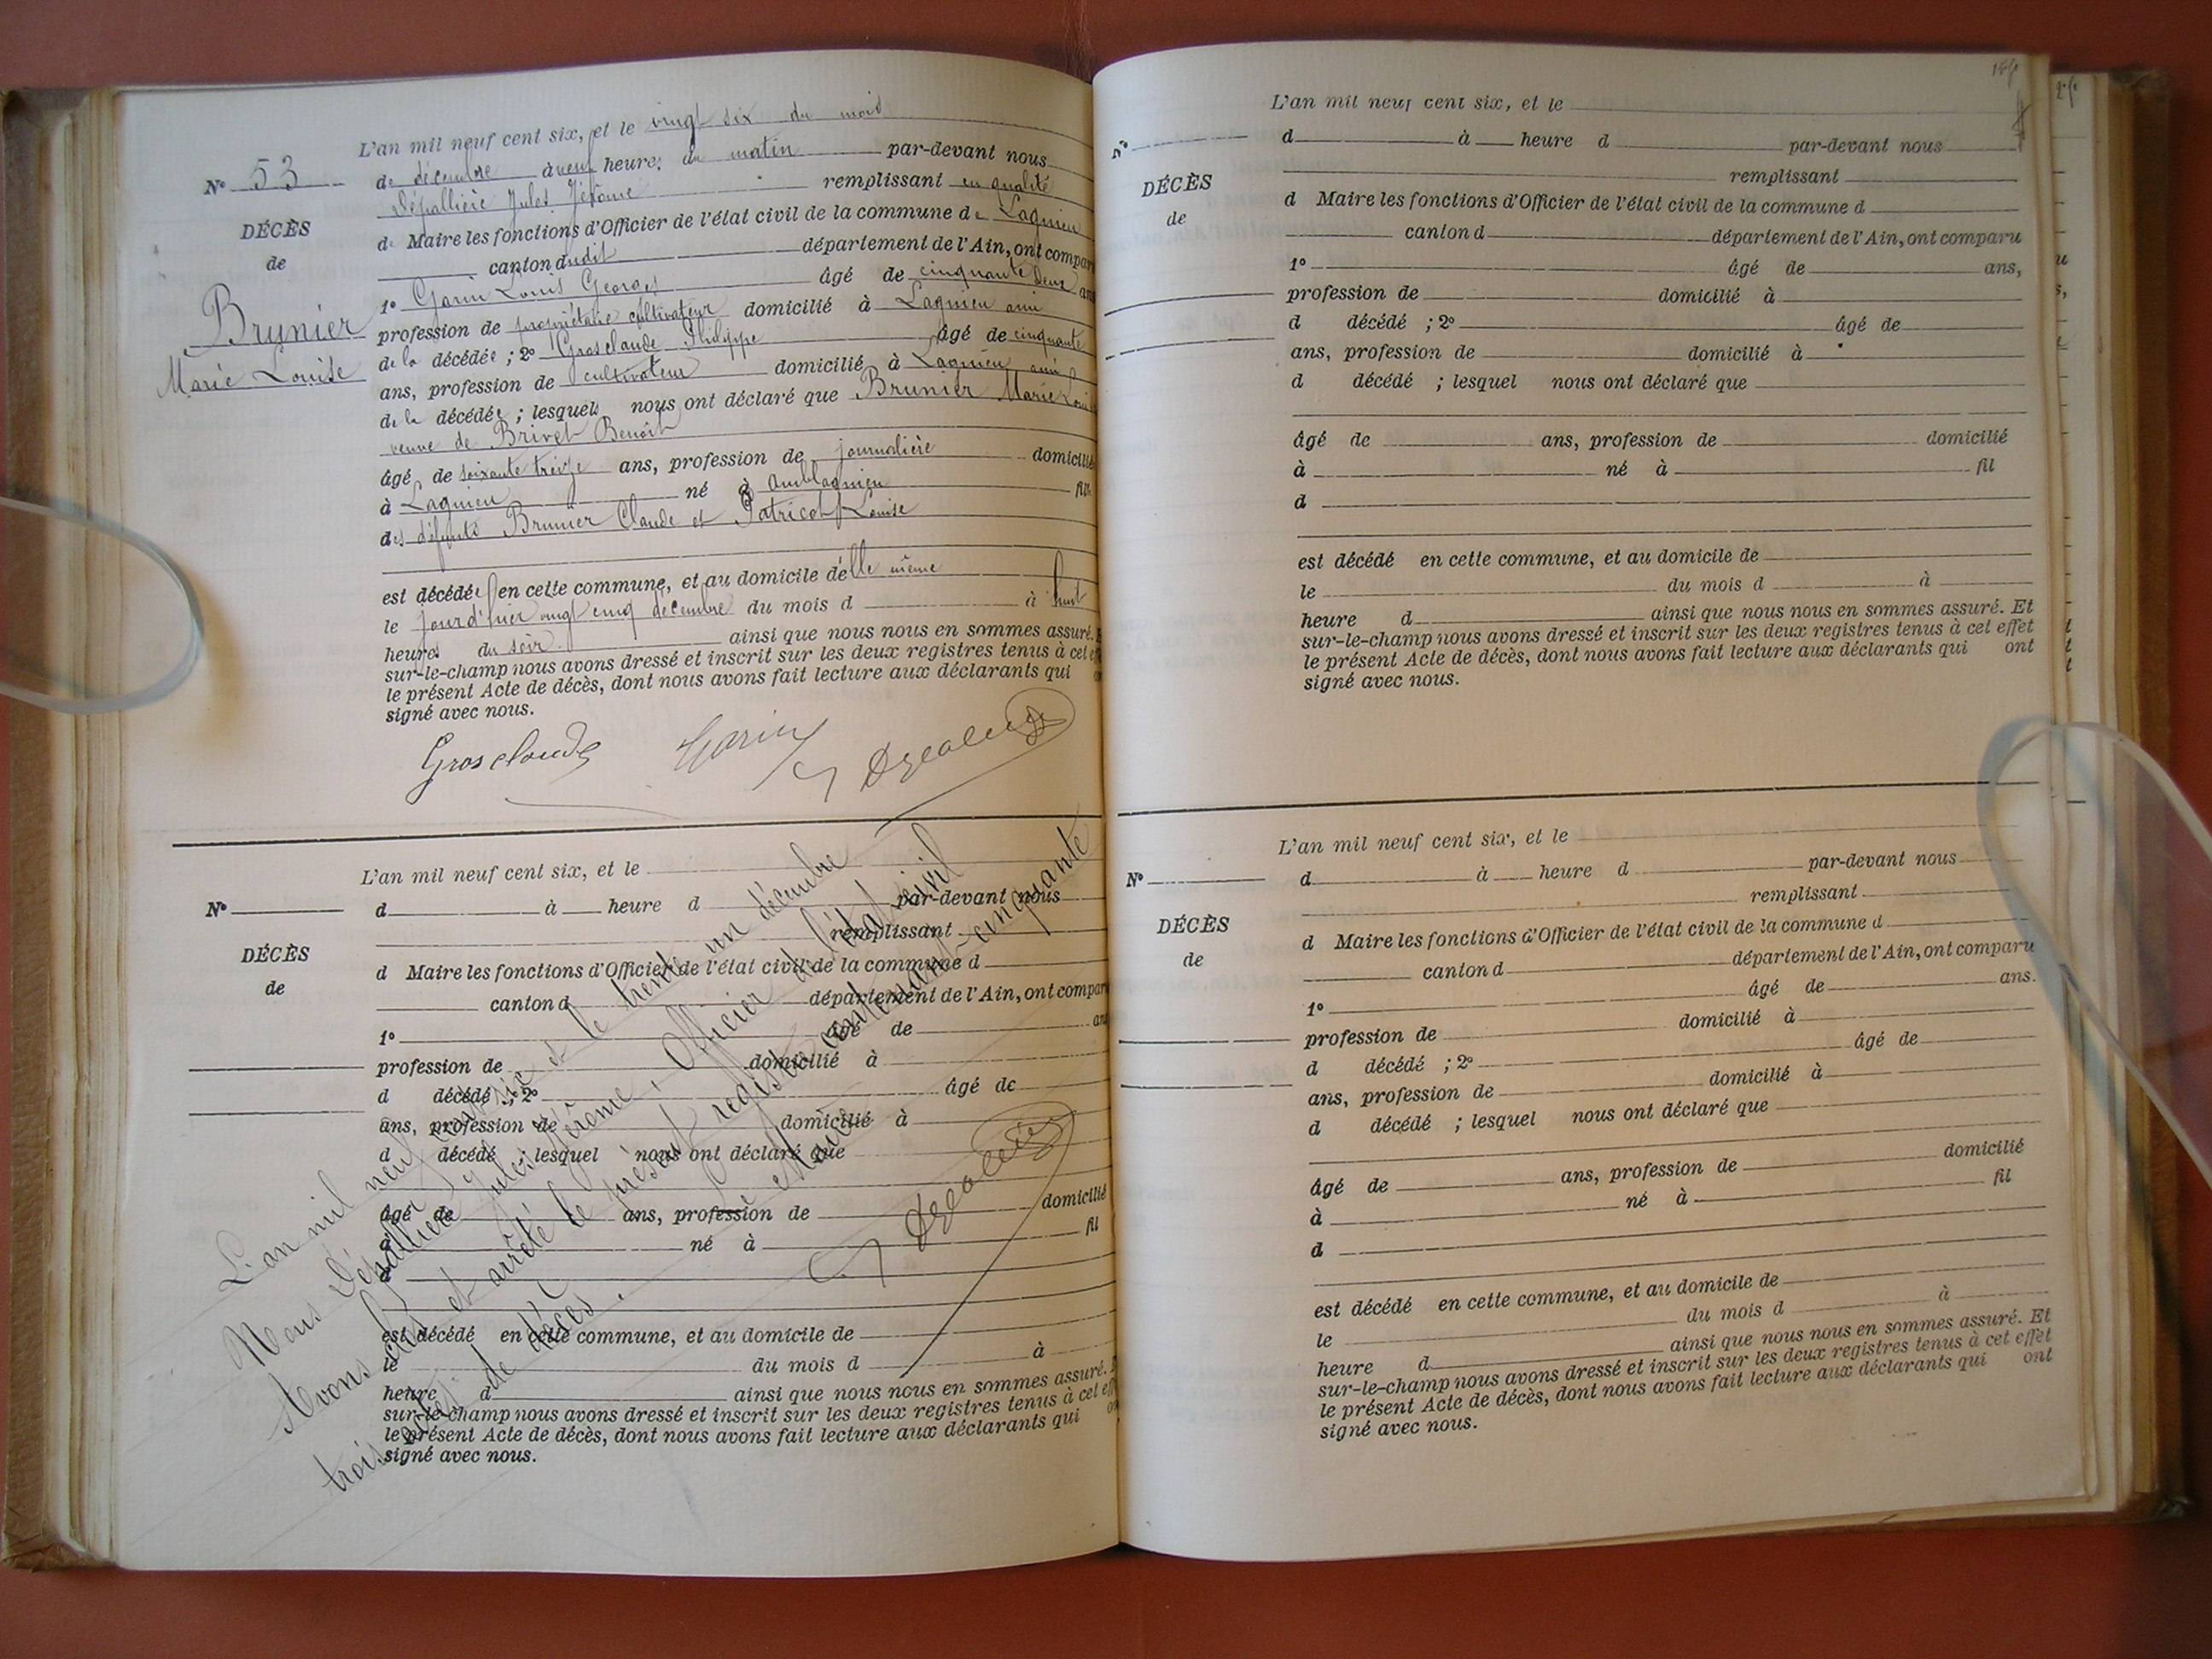 L'an mil neuf cent six, et le vingt six du mois
N° 53
de décembre à neuf heures du matin par-devant nous
Dépallière Jules Jérôme remplissant en qualité
DÉCÈS
de Maire les fonctions d'Officier de l'état civil de la commune de Lagnieu
de
canton dudit département de l'Ain, ont compar
1° Garin Louis Georges âgé de cinquante deux ans
Brunier
profession de propriétaire cultivateur domicilié à Lagnieu ami
de la décédée ; 2° Grosclaude Philippe âgé de cinquante
Marie Louise
ans, profession de cultivateur domicilié à Lagnieu ami
de la décédée ; lesquels nous ont déclaré que Brunier Marie Louise
veuve de Brivet Benoît
âgé de soixante treize ans, profession de journalière domicilié
à Lagnieu né à Amblagnieu fil
des défunts Brunier Claude et Patricot Louise
est décédée en cette commune, et au domicile delle même
le jour d'hier vingt cinq décembre du mois d à huit
heures du soir ainsi que nous nous en sommes assuré.
sur-le-champ nous avons dressé et inscrit sur les deux registres tenus à cet eff
le présent Acte de décès, dont nous avons fait lecture aux déclarants qui
signé avec nous.
Grosclaude Garin
L'an mil neuf cent six, et le
N°
d à heure d par-devant nous
remplissant
DÉCÈS
d Maire les fonctions d'Officier de l'état civil de la commune d
de
canton d département de l'Ain, ont compar
1° âgé de ans
profession de domicilié à
d décédé ; 2° âgé de
ans, profession de domicilié à
d décédé ; lesquel nous ont déclaré que
âgé de ans, profession de domicilié
à né à fil
d
est décédé en cette commune, et au domicile de
le du mois d à
heure d ainsi que nous nous en sommes assuré.
sur-le-champ nous avons dressé et inscrit sur les deux registres tenus à cet eff
le présent Acte de décès, dont nous avons fait lecture aux déclarants qui
signé avec nous.
L'an mil neuf cent six et le trente un décembre
Nous Dépallière Jules Jérôme, Officier de l'état civil
Avons clos et arrêté le présent registre contenant cinquante
trois actes de décès.
Le Maire
L'an mil neuf cent six, et le
N°
d à heure d par-devant nous
remplissant
DÉCÈS
d Maire les fonctions d'Officier de l'état civil de la commune d
de
canton d département de l'Ain, ont comparu
1° âgé de ans,
profession de domicilié à
d décédé ; 2° âgé de
ans, profession de domicilié à
d décédé ; lesquel nous ont déclaré que
âgé de ans, profession de domicilié
à né à fil
d
est décédé en cette commune, et au domicile de
le du mois d à
heure d ainsi que nous nous en sommes assuré. Et
sur-le-champ nous avons dressé et inscrit sur les deux registres tenus à cet effet
le présent Acte de décès, dont nous avons fait lecture aux déclarants qui ont
signé avec nous.
L'an mil neuf cent six, et le
N°
d à heure d par-devant nous
remplissant
DÉCÈS
d Maire les fonctions d'Officier de l'état civil de la commune d
de
canton d département de l'Ain, ont comparu
1° âgé de ans.
profession de domicilié à
d décédé ; 2° âgé de
ans, profession de domicilié à
d décédé ; lesquel nous ont déclaré que
âgé de ans, profession de domicilié
à né à fil
d
est décédé en cette commune, et au domicile de
le du mois d à
heure d ainsi que nous nous en sommes assuré. Et
sur-le-champ nous avons dressé et inscrit sur les deux registres tenus à cet effet
le présent Acte de décès, dont nous avons fait lecture aux déclarants qui ont
signé avec nous.